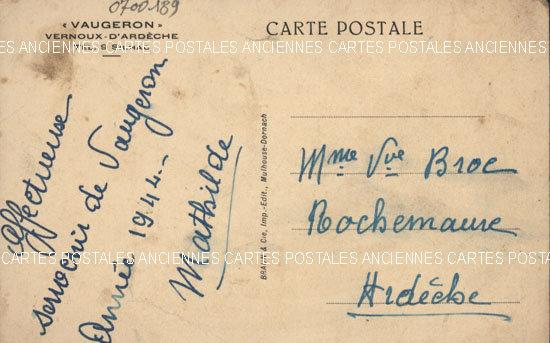 0700189
« VAUGERON »
VERNOUX-D'ARDÈCHE
CARTE POSTALE
CARTES POSTALES ANCIENNES CARTES POSTALES ANCIENNES CARTES POSTALES ANCIENNES
Affectueuse
souvenir de Vaugeron
Année 1944_
Mathilde
BRAUN & Cie, Imp.-Edit., Mulhouse-Dornach
Mme Vve Broc
Rochemaure
Ardèche
CARTES POSTALES ANCIENNES CARTES POSTALES ANCIENNES CARTES POSTALES ANCIENNES